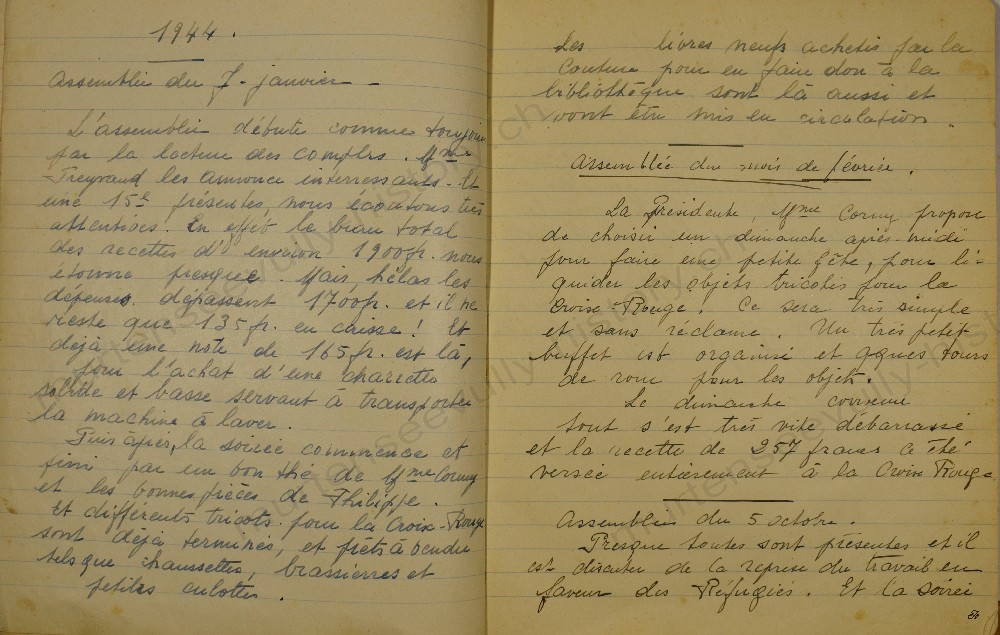 1944.
Assemblée du 7 janvier
L'assemblée débute comme toujours
par la lecture des comptes. Mme
Treyvaud les annonce interressants. Et
une 15e présentes, nous écoutons très
attentives. En effet le beau total
des recettes d'environ 1900fr. nous
étonne presque. Mais, hélas les
dépenses dépassent 1700fr. et il ne
reste que 135 fr. en caisse! Et
déjà une note de 165 fr. est là,
pour l'achat d'une charette
solide et basse servant à transporter
la machine à laver.
Puis après, la soirée commence et
fini par un bon thé de Mme Cornuz
et les bonnes pièces de Philippe.
Et différents tricots pour la Croix-Rouge
sont déjà terminés, et prêts à vendre
tels que chaussettes, brassierres et
petites culottes.
Les livres neufs achetés par la
Couture pour en faire don à la
bibliothèque sont là aussi et
vont être mis en circulation.
Assemblée du mois de février.
La Présidente, Mme Cornuz propose
de choisir un dimanche après-midi
pour faire une petite fête, pour li-
quider les objets tricotés pour la
Croix-Rouge. Ce sera très simple
et sans réclame. Un très petit
buffet est organisé et qques tours
de roue pour les objets.
Le dimanche convenu
tout s'est très vite débarrassé
et la recette de 257 francs a été
versée entièrement à la Croix Rouge
Assemblée du 5 octobre.
Presque toutes sont présentes et il
est discuter de la reprise du travail en
faveur des Réfugiés. Et la soirée